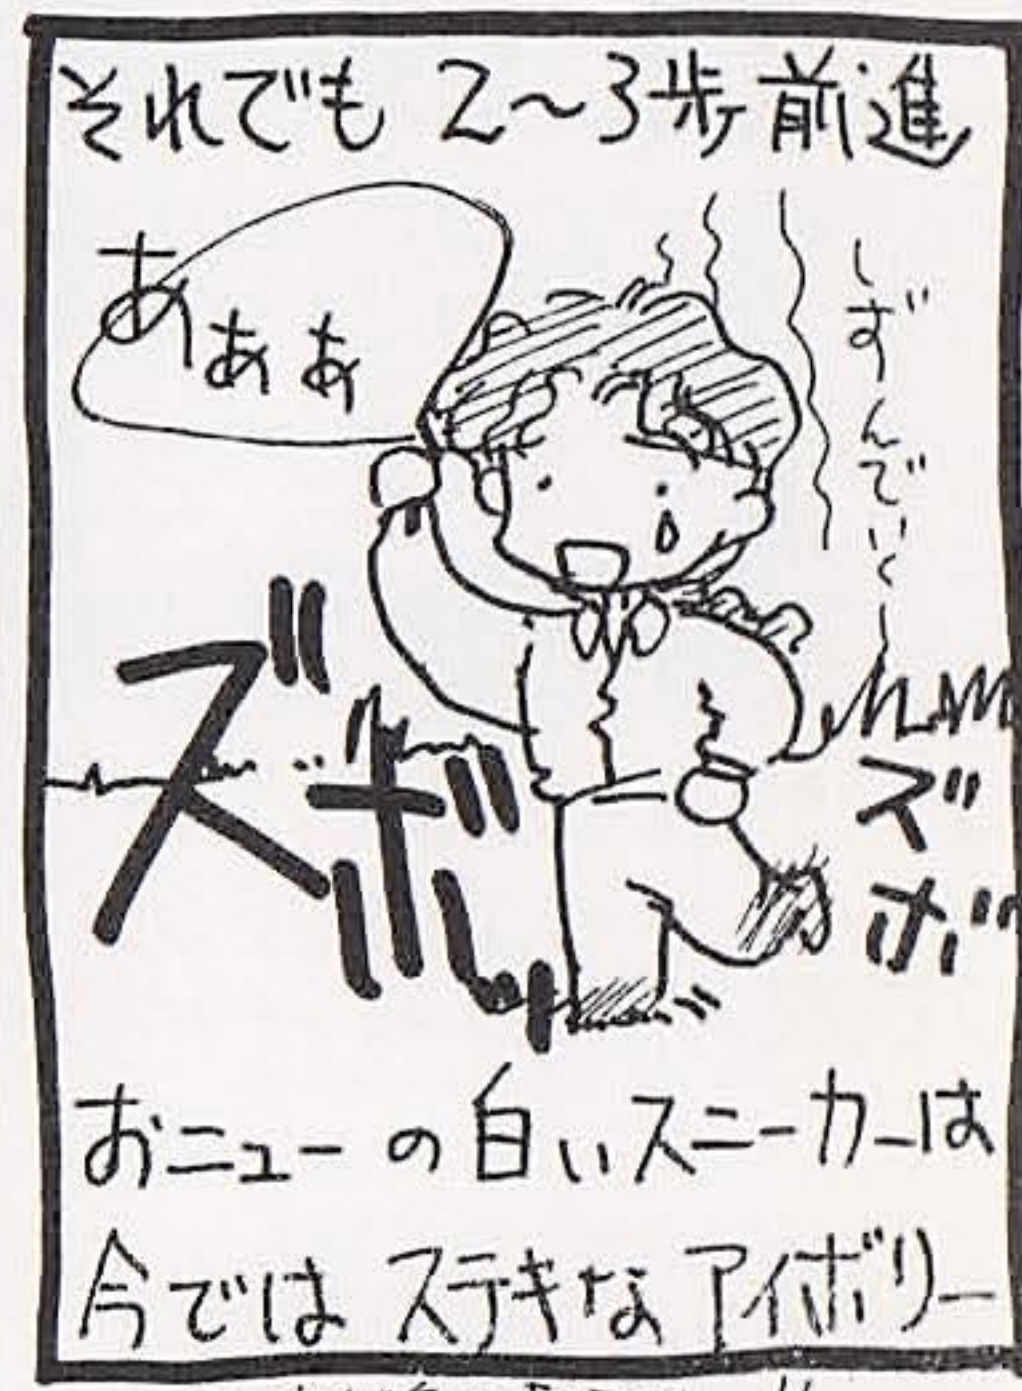 それでも 2〜3歩前進
あぁぁ
しずんでいく〜
ズボッ
ズボ
おニューの白いスニーカーは
今ではステキなアイボリー